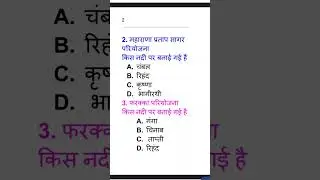 2
2. महाराणा प्रताप सागर
परियोजना
किस नदी पर बनाई गई है
A. चंबल
B. रिहंद
C. कृष्णा
D. भागीरथी
3. फरक्का परियोजना
किस नदी पर बनाई गई है
A. गंगा
B. चिनाब
C. ताप्ती
D. रिहंद
A. चं
B. रि
C. कृ
D. भा
3. फरक
किस नदी